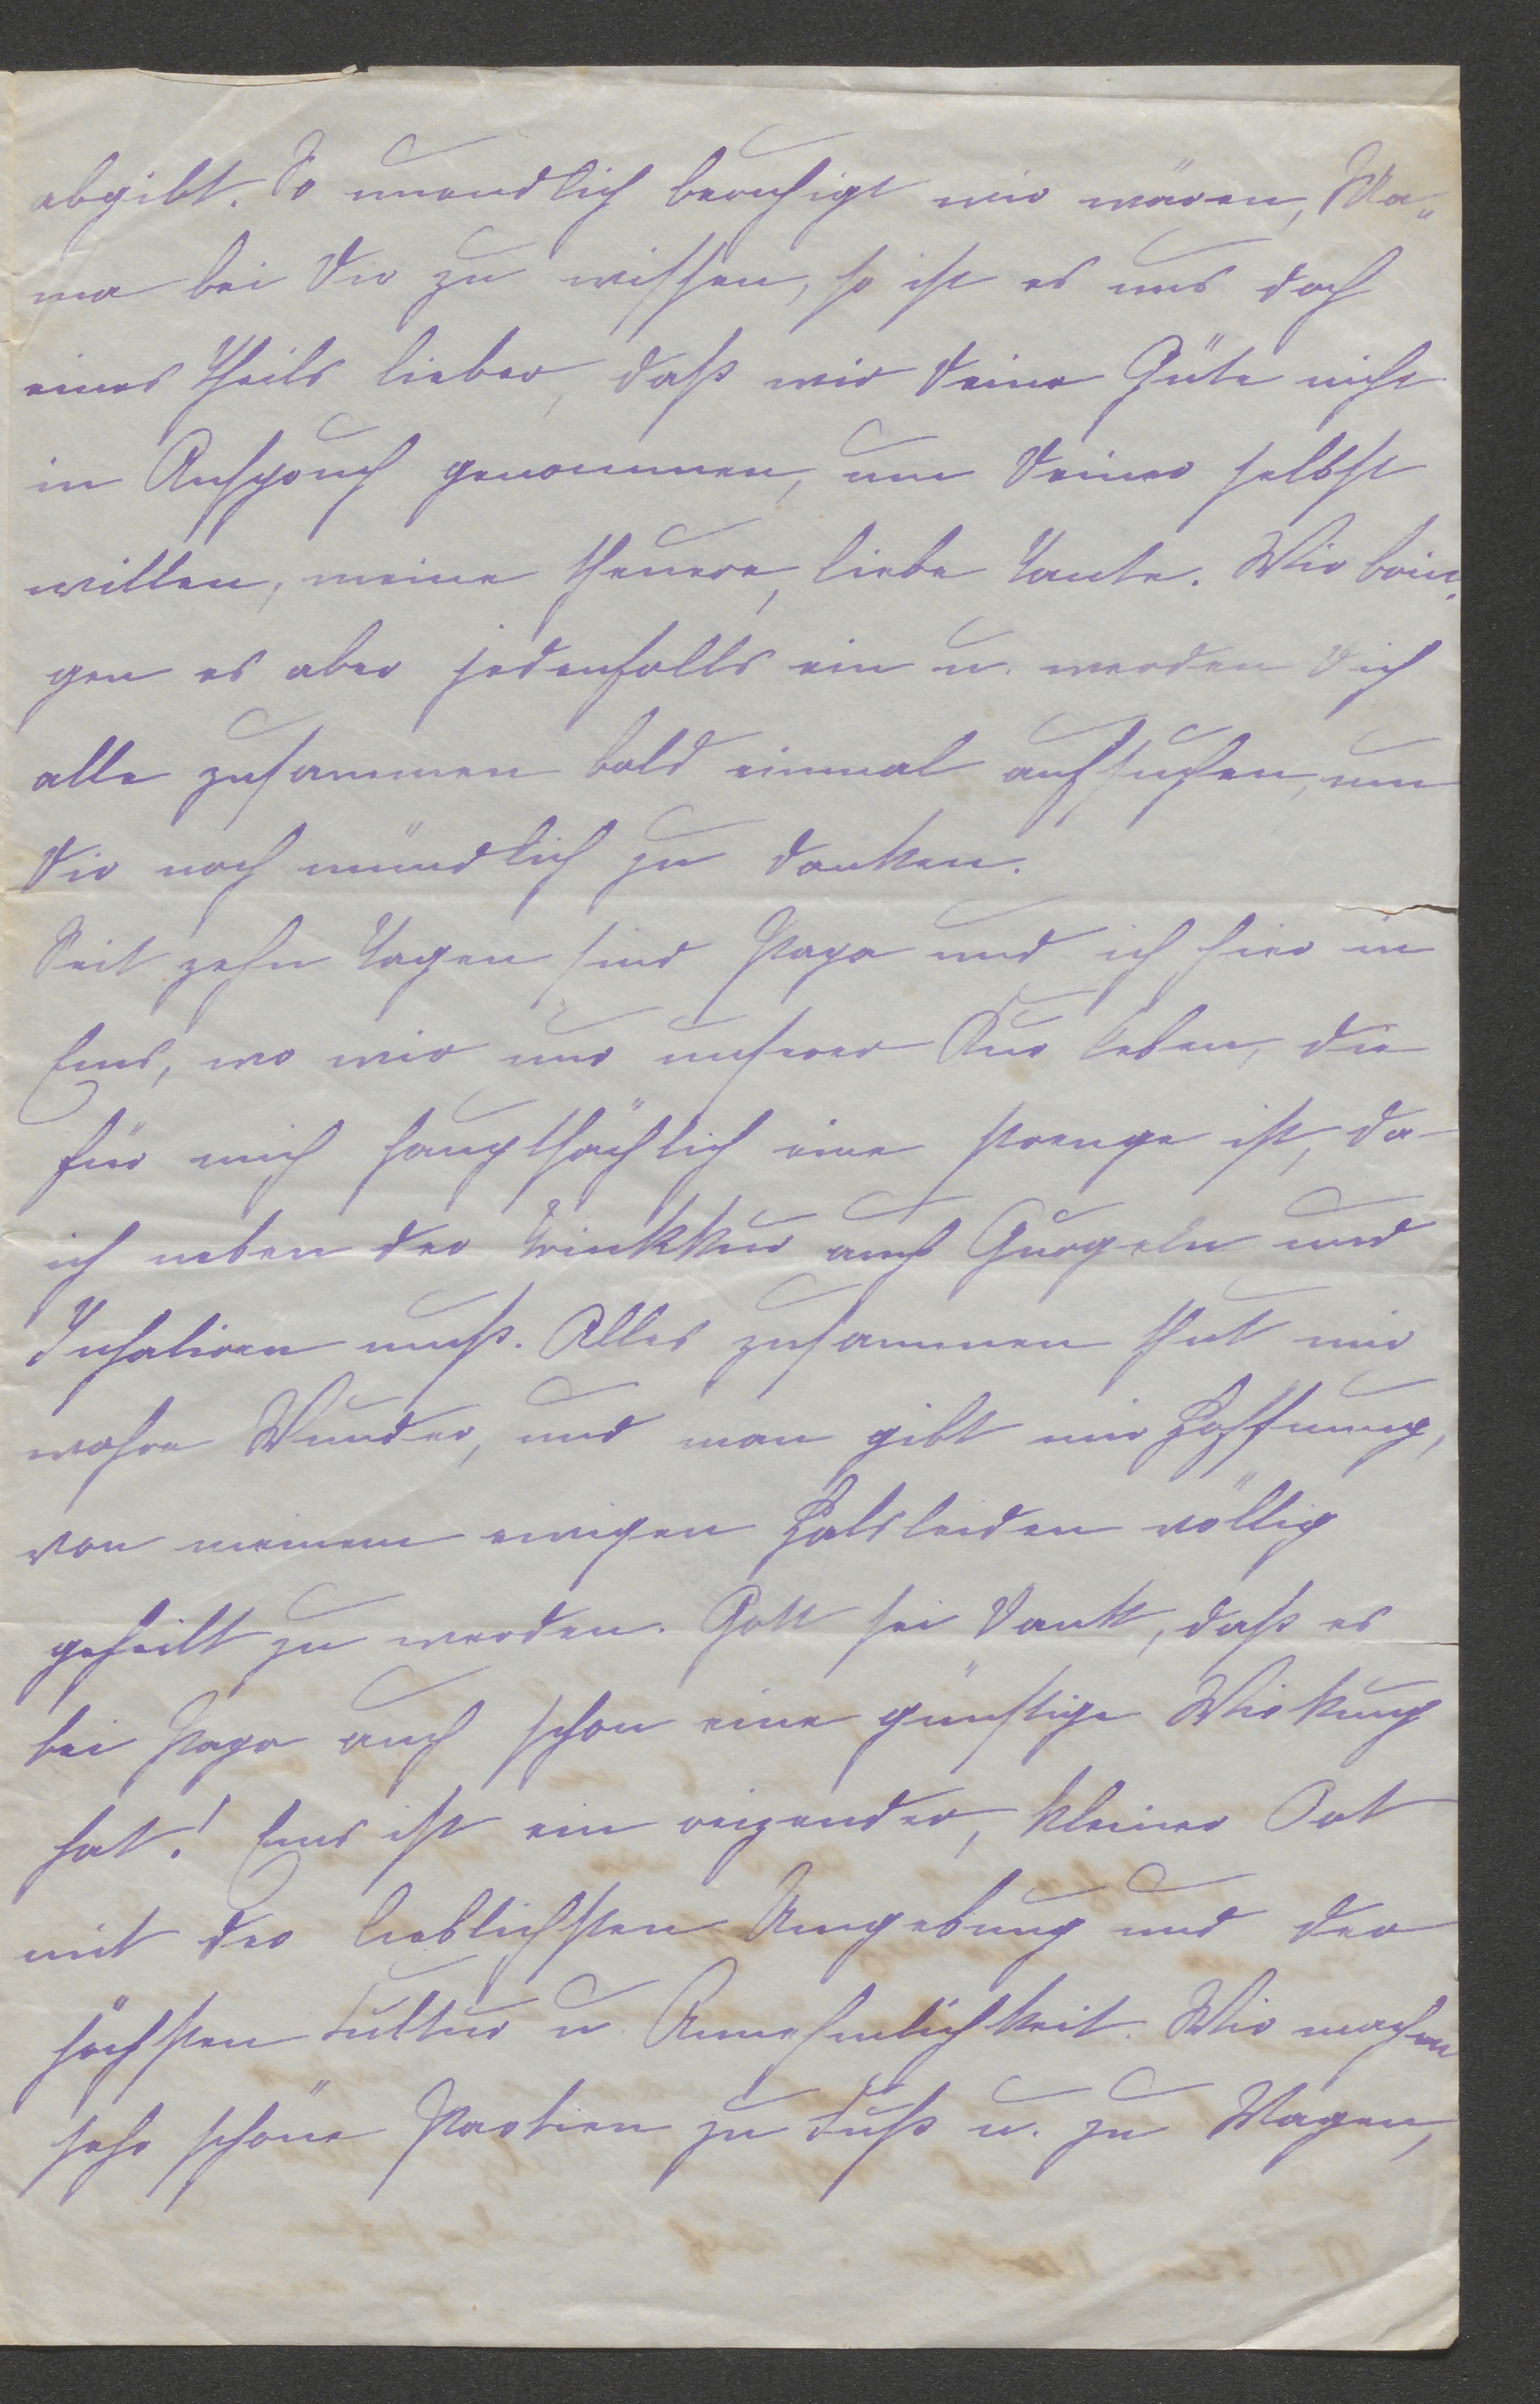 abgibt. So unendlich beruhigt wir wären, Ma„
ma bei Dir zu wissen, so ist es uns doch
eines Theils lieber, daß wir Deine Güte nicht
in Anspruch genommen, um Deiner selbst
willen, meine theuere, liebe Tante. Wir brin„
gen es aber jedenfalls ein u. werden Dich
alle zusammen bald einmal aufsuchen, um
Dir noch mündlich zu danken.
Seit zehn Tagen sind Papa und ich hier in
Ems, wo wir nur unserer Kur leben, die
für mich hauptsächlich eine strenge ist, da
ich neben der Trinkkur auch Gurgeln und
Inhaliren muß. Alles zusammen thut mir
wahre Wunder, und man gibt mir Hoffnung,
von meinem ewigen Halsleiden völlig
geheilt zu werden. Gott sei Dank, daß es
bei Papa auch schon eine günstige Wirkung
hat! Ems ist ein reizender, kleiner Ort
mit der lieblichsten Umgebung und der
höchsten Cultur u. Annehmlichkeit. Wir machen
sehr schöne Partien zu Fuß u. zu Wagen,